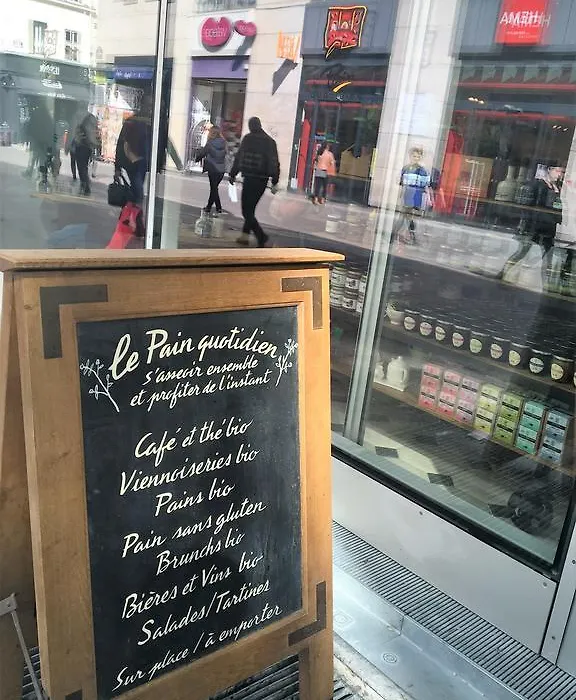 le Pain quotidien
s'asseoir ensemble
et profiter de l'instant
Café et thé bio
Viennoiseries bio
Pains bio
Pain sans gluten
Brunchs bio
Bières et Vins bio
Salades/Tartines
Sur place / à emporter